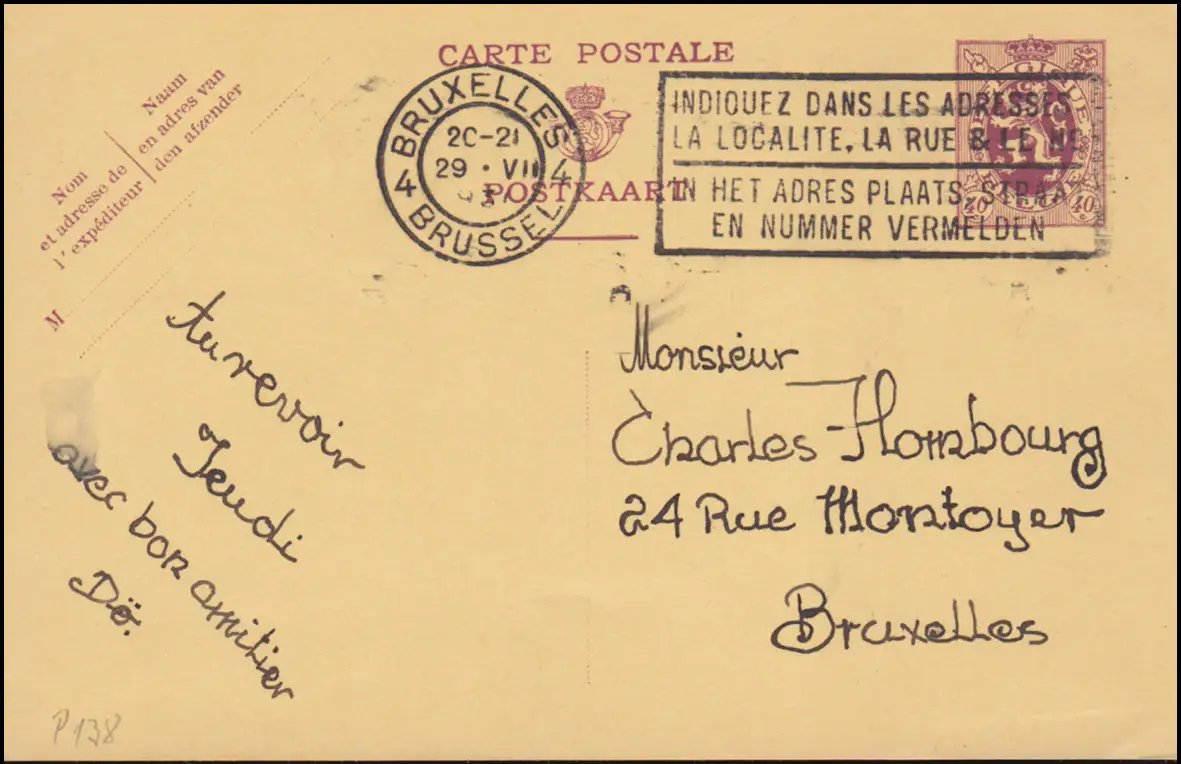 CARTE POSTALE
POSTKAART
Nom
et adresse de
l'expéditeur
Naam
en adres van
den afzender
M
BRUXELLES
4 4
20-21
29 · VII
BRUSSEL
INDIQUEZ DANS LES ADRESSES
LA LOCALITE, LA RUE & LE
IN HET ADRES PLAATS, STRAA
EN NUMMER VERMELDEN
BELGIQUE
40 40
Monsieur
Charles Hombourg
24 Rue Montoyer
Bruxelles
Au revoir
Jeudi
avec bon amitier
Dö.
P138